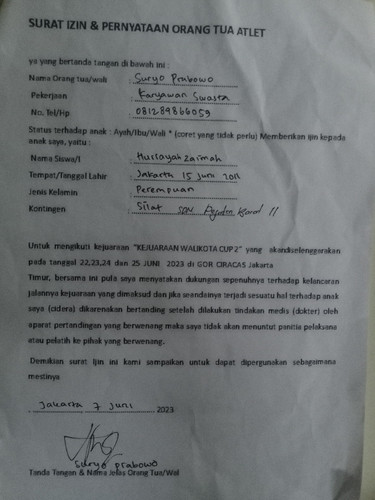 SURAT IZIN & PERNYATAAN ORANG TUA ATLET
ya yang bertanda tangan di bawah ini :
Nama Orang tua/wali : Suryo Prabowo
Pekerjaan : Karyawan Swasta
No. Tel/Hp : 081289866059
Status terhadap anak : Ayah/Ibu/Wali * (coret yang tidak perlu) Memberikan Ijin kepada
anak saya, yaitu :
Nama Siswa/i :
Tempat/Tanggal Lahir : Jakarta 15 Juni 2011
Jenis Kelamin : Perempuan
Kontingen : Silat SDN
Untuk mengikuti kejuaraan "KEJUARAAN WALIKOTA CUP 2" yang akandiselenggarakan
pada tanggal 22,23,24 dan 25 JUNI 2023 di GOR CIRACAS Jakarta
Timur, bersama ini pula saya menyatakan dukungan sepenuhnya terhadap kelancaran
jalannya kejuaraan yang dimaksud dan jika seandainya terjadi sesuatu hal terhadap anak
saya (cidera) dikarenakan bertanding setelah dilakukan tindakan medis (dokter) oleh
aparat pertandingan yang berwenang maka saya tidak akan menuntut panitia pelaksana
atau pelatih ke pihak yang berwenang.
Demikian surat Ijin ini kami sampaikan untuk dapat dipergunakan sebagaimana
mestinya
Jakarta 7 Juni 2023
Suryo prabowo
Tanda Tangan & Nama Jelas Orang Tua/Wal